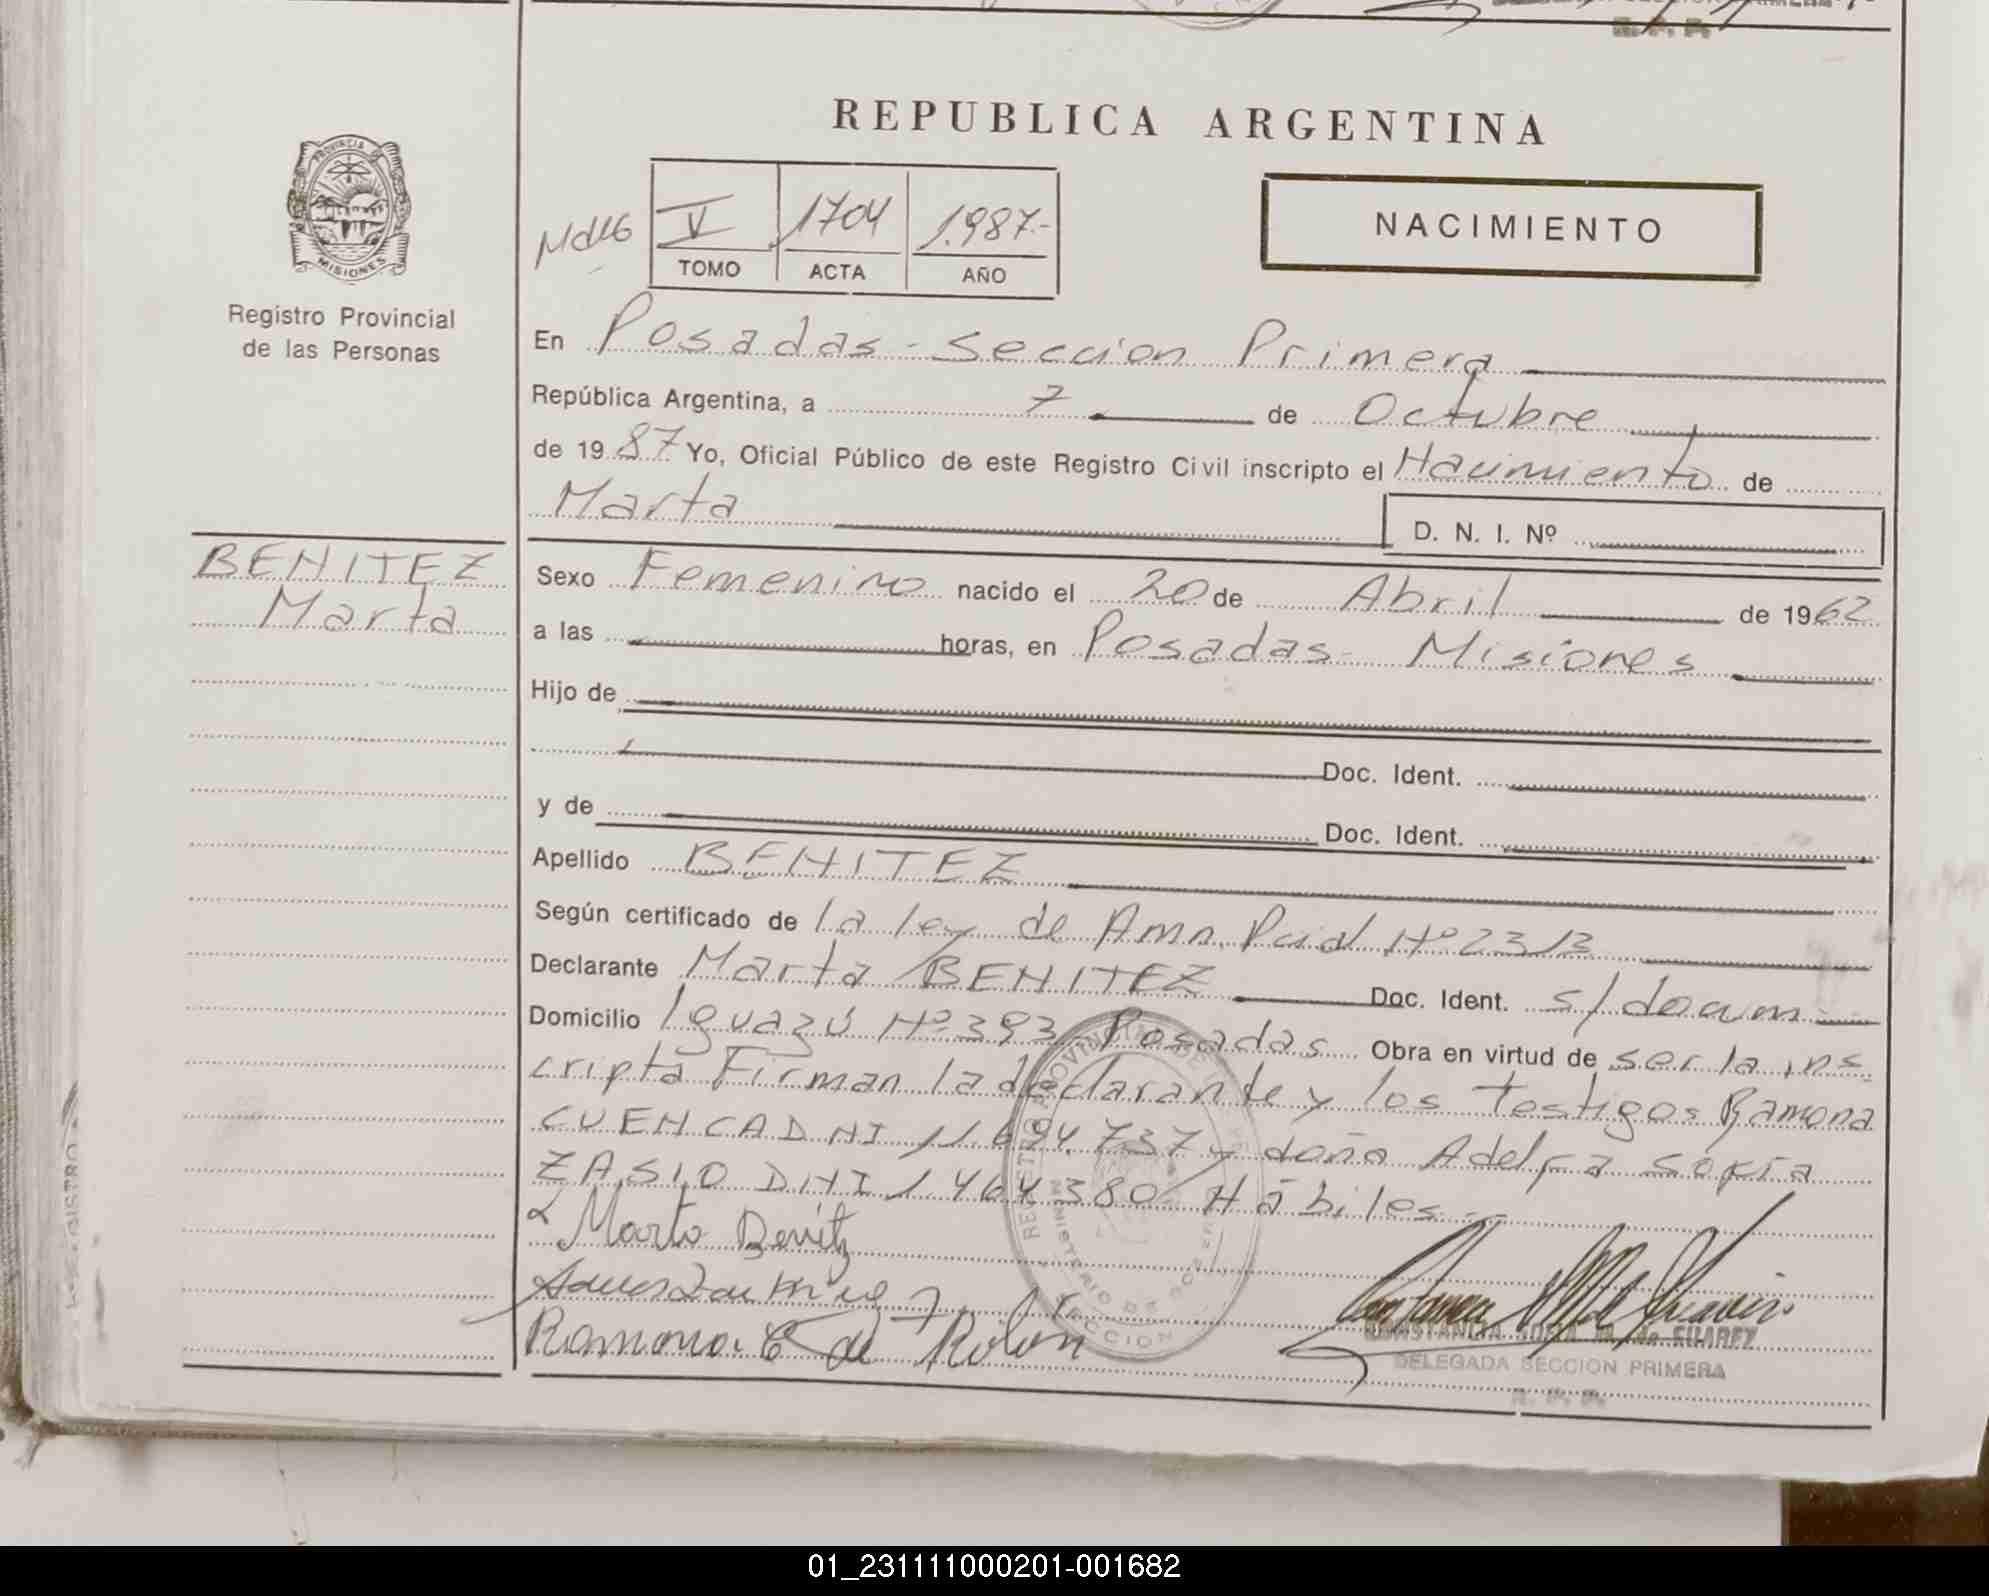 REPUBLICA ARGENTINA
PROVINCIA D
MISIONES
Registro Provincial
de las Personas
V 1704 1.987.-
TOMO ACTA AÑO
NACIMIENTO
En Posadas - Seccion Primera
República Argentina, a 7 de Octubre
de 1987 Yo, Oficial Público de este Registro Civil inscripto el Nacimiento de
Marta D. N. I. Nº
BENITEZ
Marta
Sexo Femenino nacido el 20 de Abril de 1962
a las horas, en Posadas - Misiones
Hijo de
Doc. Ident.
y de Doc. Ident.
Apellido BENITEZ
Según certificado de la ley de Amn. Pcial Nº 2313
Declarante Marta BENITEZ Doc. Ident. s/docum
Domicilio Iguazú Nº 393 - Posadas Obra en virtud de ser la ins
cripta Firman la declarante y los testigos Ramona
CUENCA DNI 11.694.737 y doña Adelfa sofia
ZASIO DNI 1.464.380/ Hábiles
Marta Benitz
Ramona C de Rolon
CONSTANCIA de SUAREZ
DELEGADA SECCION PRIMERA
R. P. P.
01_231111000201-001682